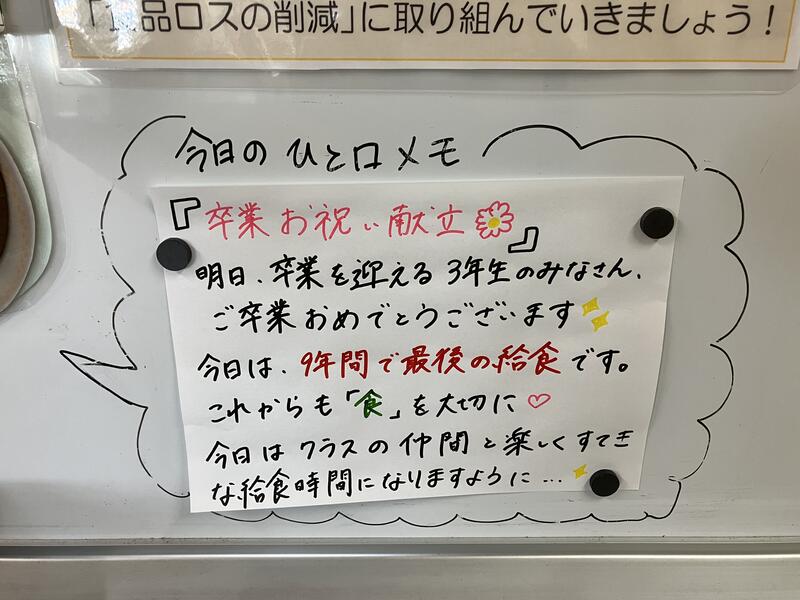 品ロスの削減」に取り組んでいきましょう！
今日のひと口メモ
『卒業お祝い献立』
明日、卒業を迎える3年生のみなさん、
ご卒業おめでとうございます
今日は、9年間で最後の給食です。
これからも「食」を大切に♡
今日はクラスの仲間と楽しくすてき
な給食時間になりますように…